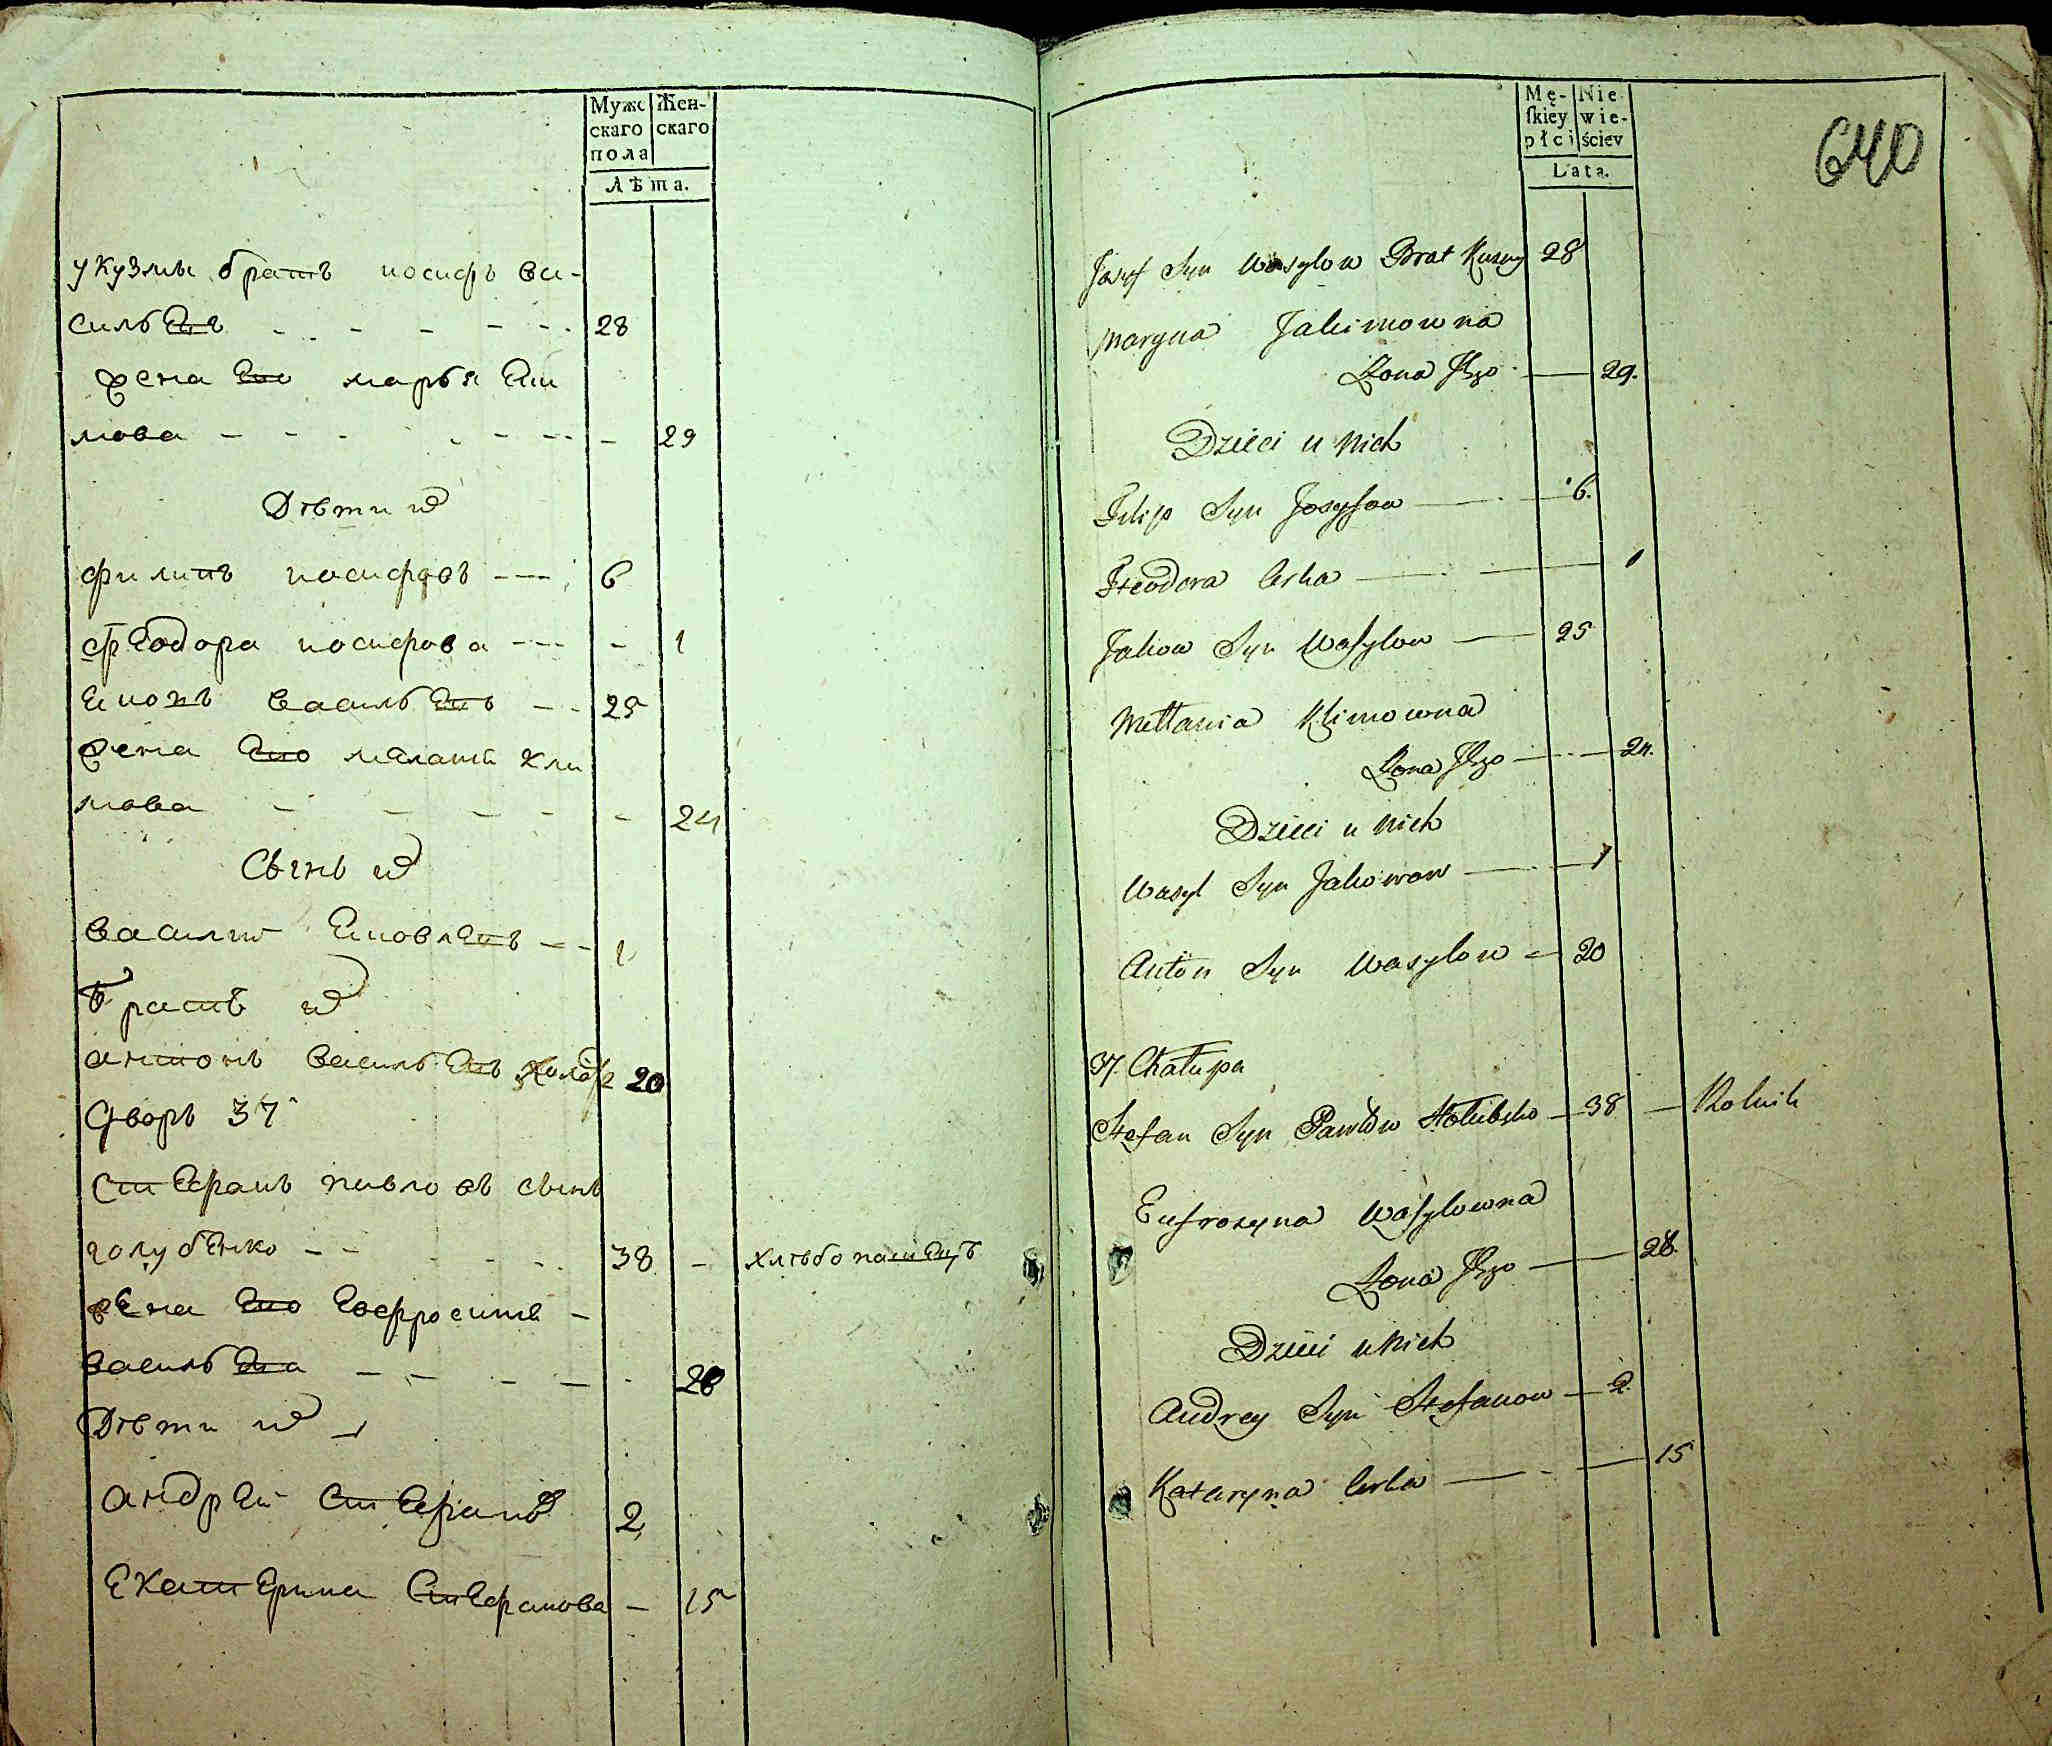 Мужс
скаго
пола
Жен-
скаго
Лѣта.
у кузмы братъ иосифъ ва-
сильевъ - - - - - - 28
жена его марья еки
мова - - - - - - - - 29
Дѣти их
филипъ иосифовъ - - - 6
феодора иосифова - - - - 1
яковъ васильевъ - - 25
жена его меланія кли
мова - - - - - 24
Сынъ их
василий яковлевъ - - 1
братъ их
антонъ васильевъ холост 20
Дворъ 37
Стефанъ павловъ сынъ
голубенко - - - - - 38 - хлѣбопашецъ
жена его евфросинія -
васильева - - - - - 28
Дѣти их
андрей Стефановъ 2
Екатерина Стефанова - 15
Mę-
skiey
płci
Nie-
wie-
ściey
Lata.
640
Jozef Syn Wasylow Brat Kuzmy 28
Maryna Jakimowna
Żona Jego - 29.
Dzieci u Nich
Filip Syn Jozyfow - 6.
Fteodora Corka - 1
Jakow Syn Wasylow - 25
Mellania Klimowna
Żona Jego - 24.
Dzieci u Nich
Wasyl Syn Jakowow - 1
Anton Syn Wasylow - 20
37. Chałupa
Stefan Syn Pawłow Hołubeko - 38 - Rolnik
Eufrozyna Wasylowna
Żona Jego - 28.
Dzieci u Nich
Andrey Syn Stefanow - 2.
Kataryna Corka - 15